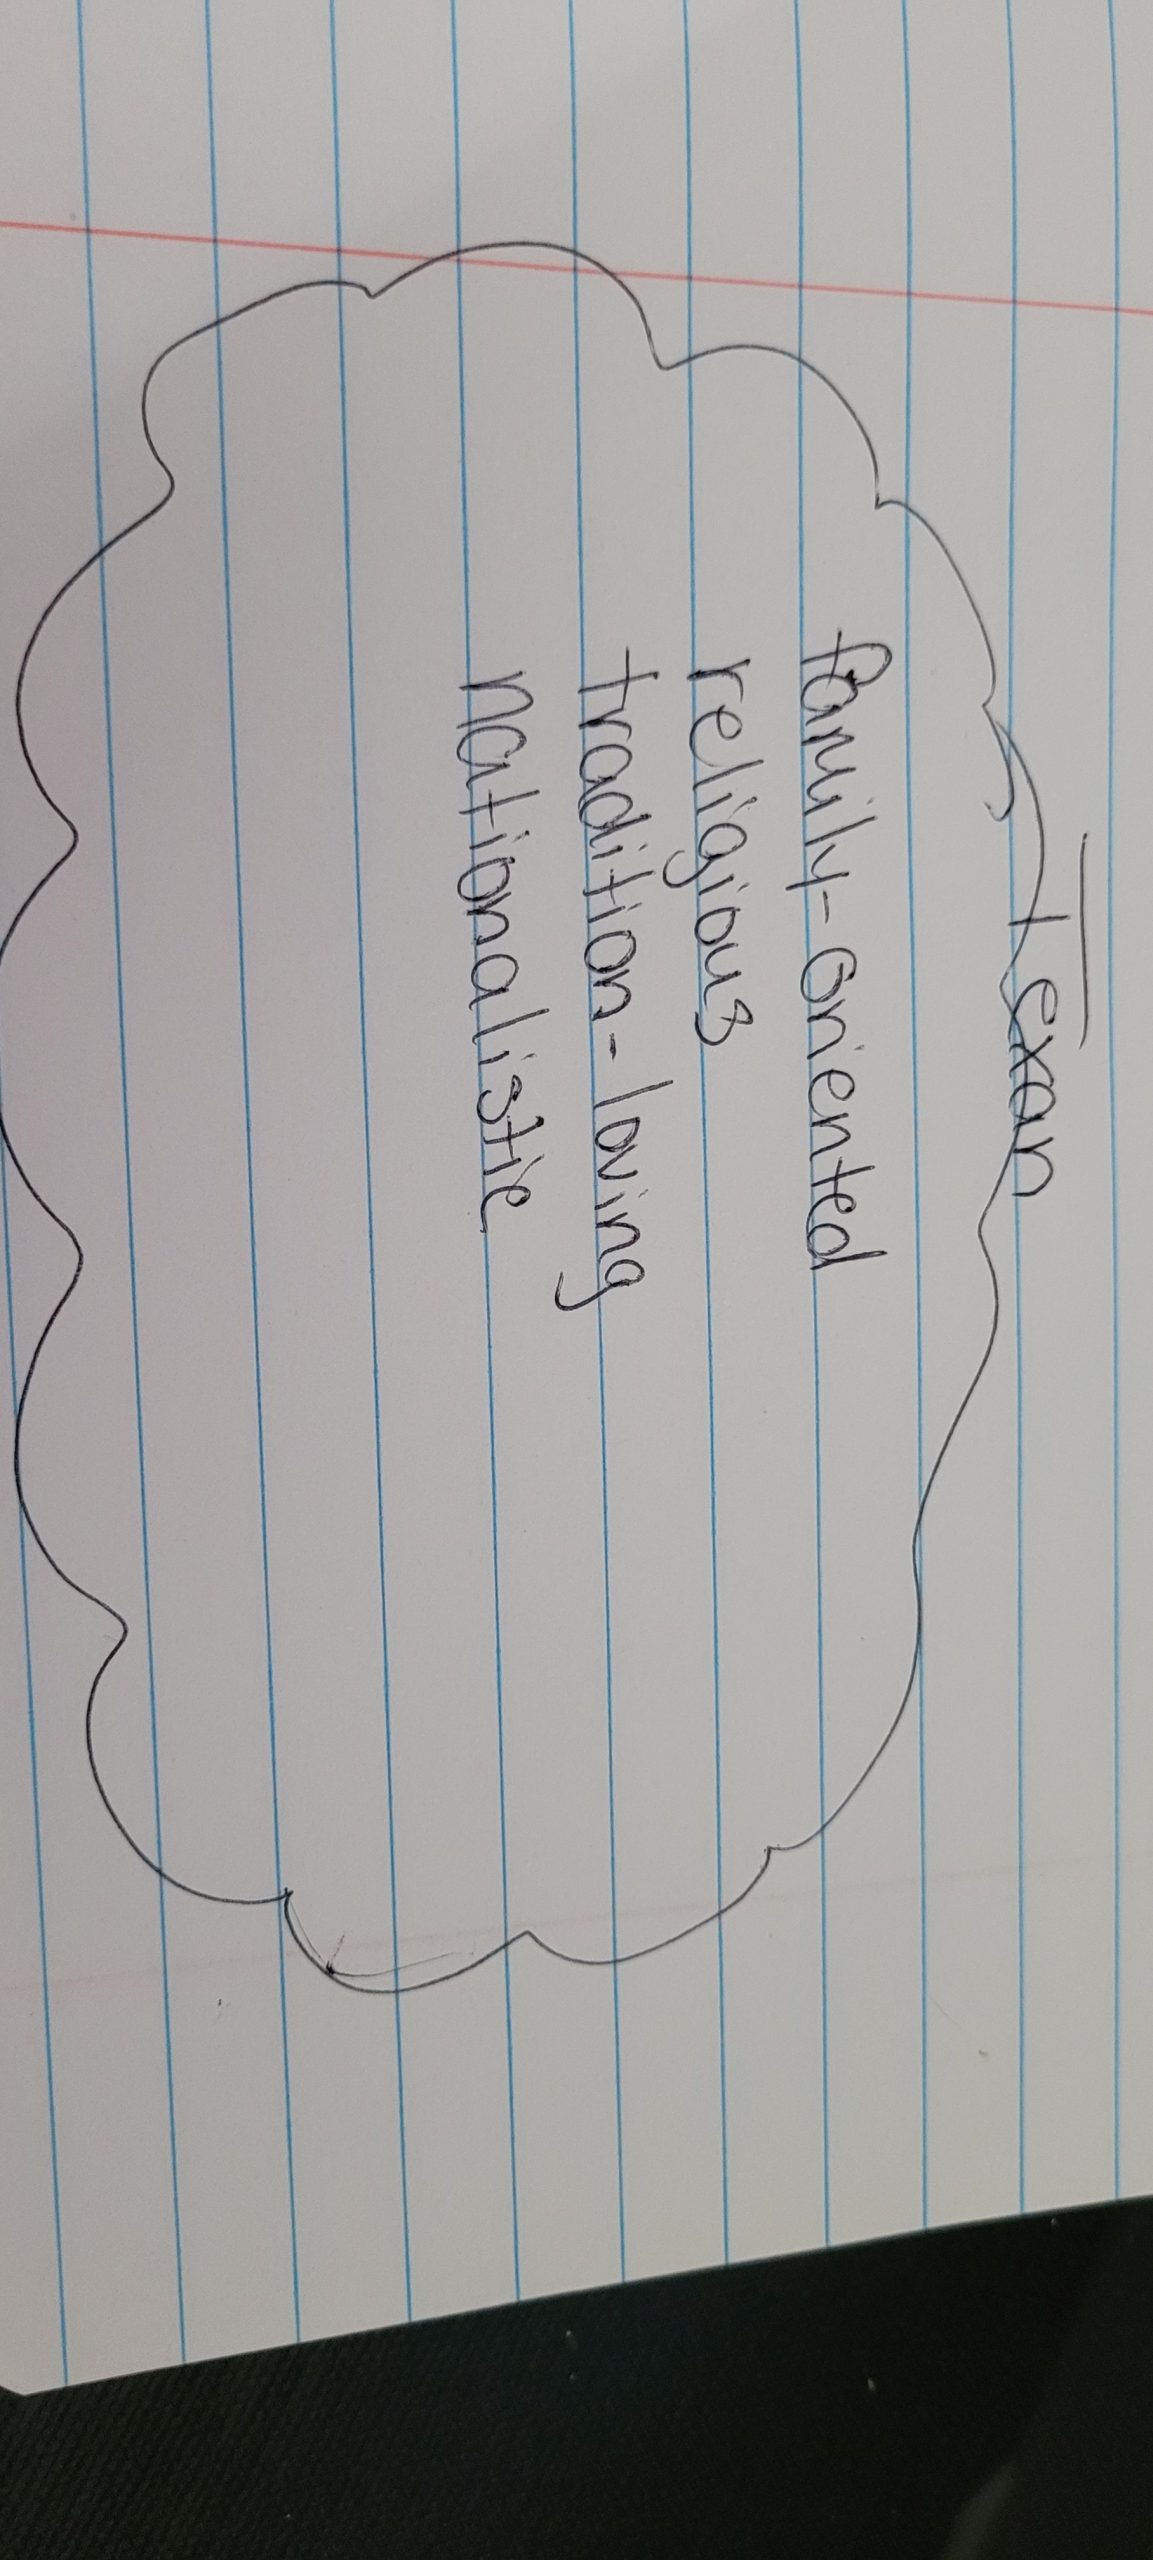 Texan
family-oriented
religious
tradition-loving
nationalistic